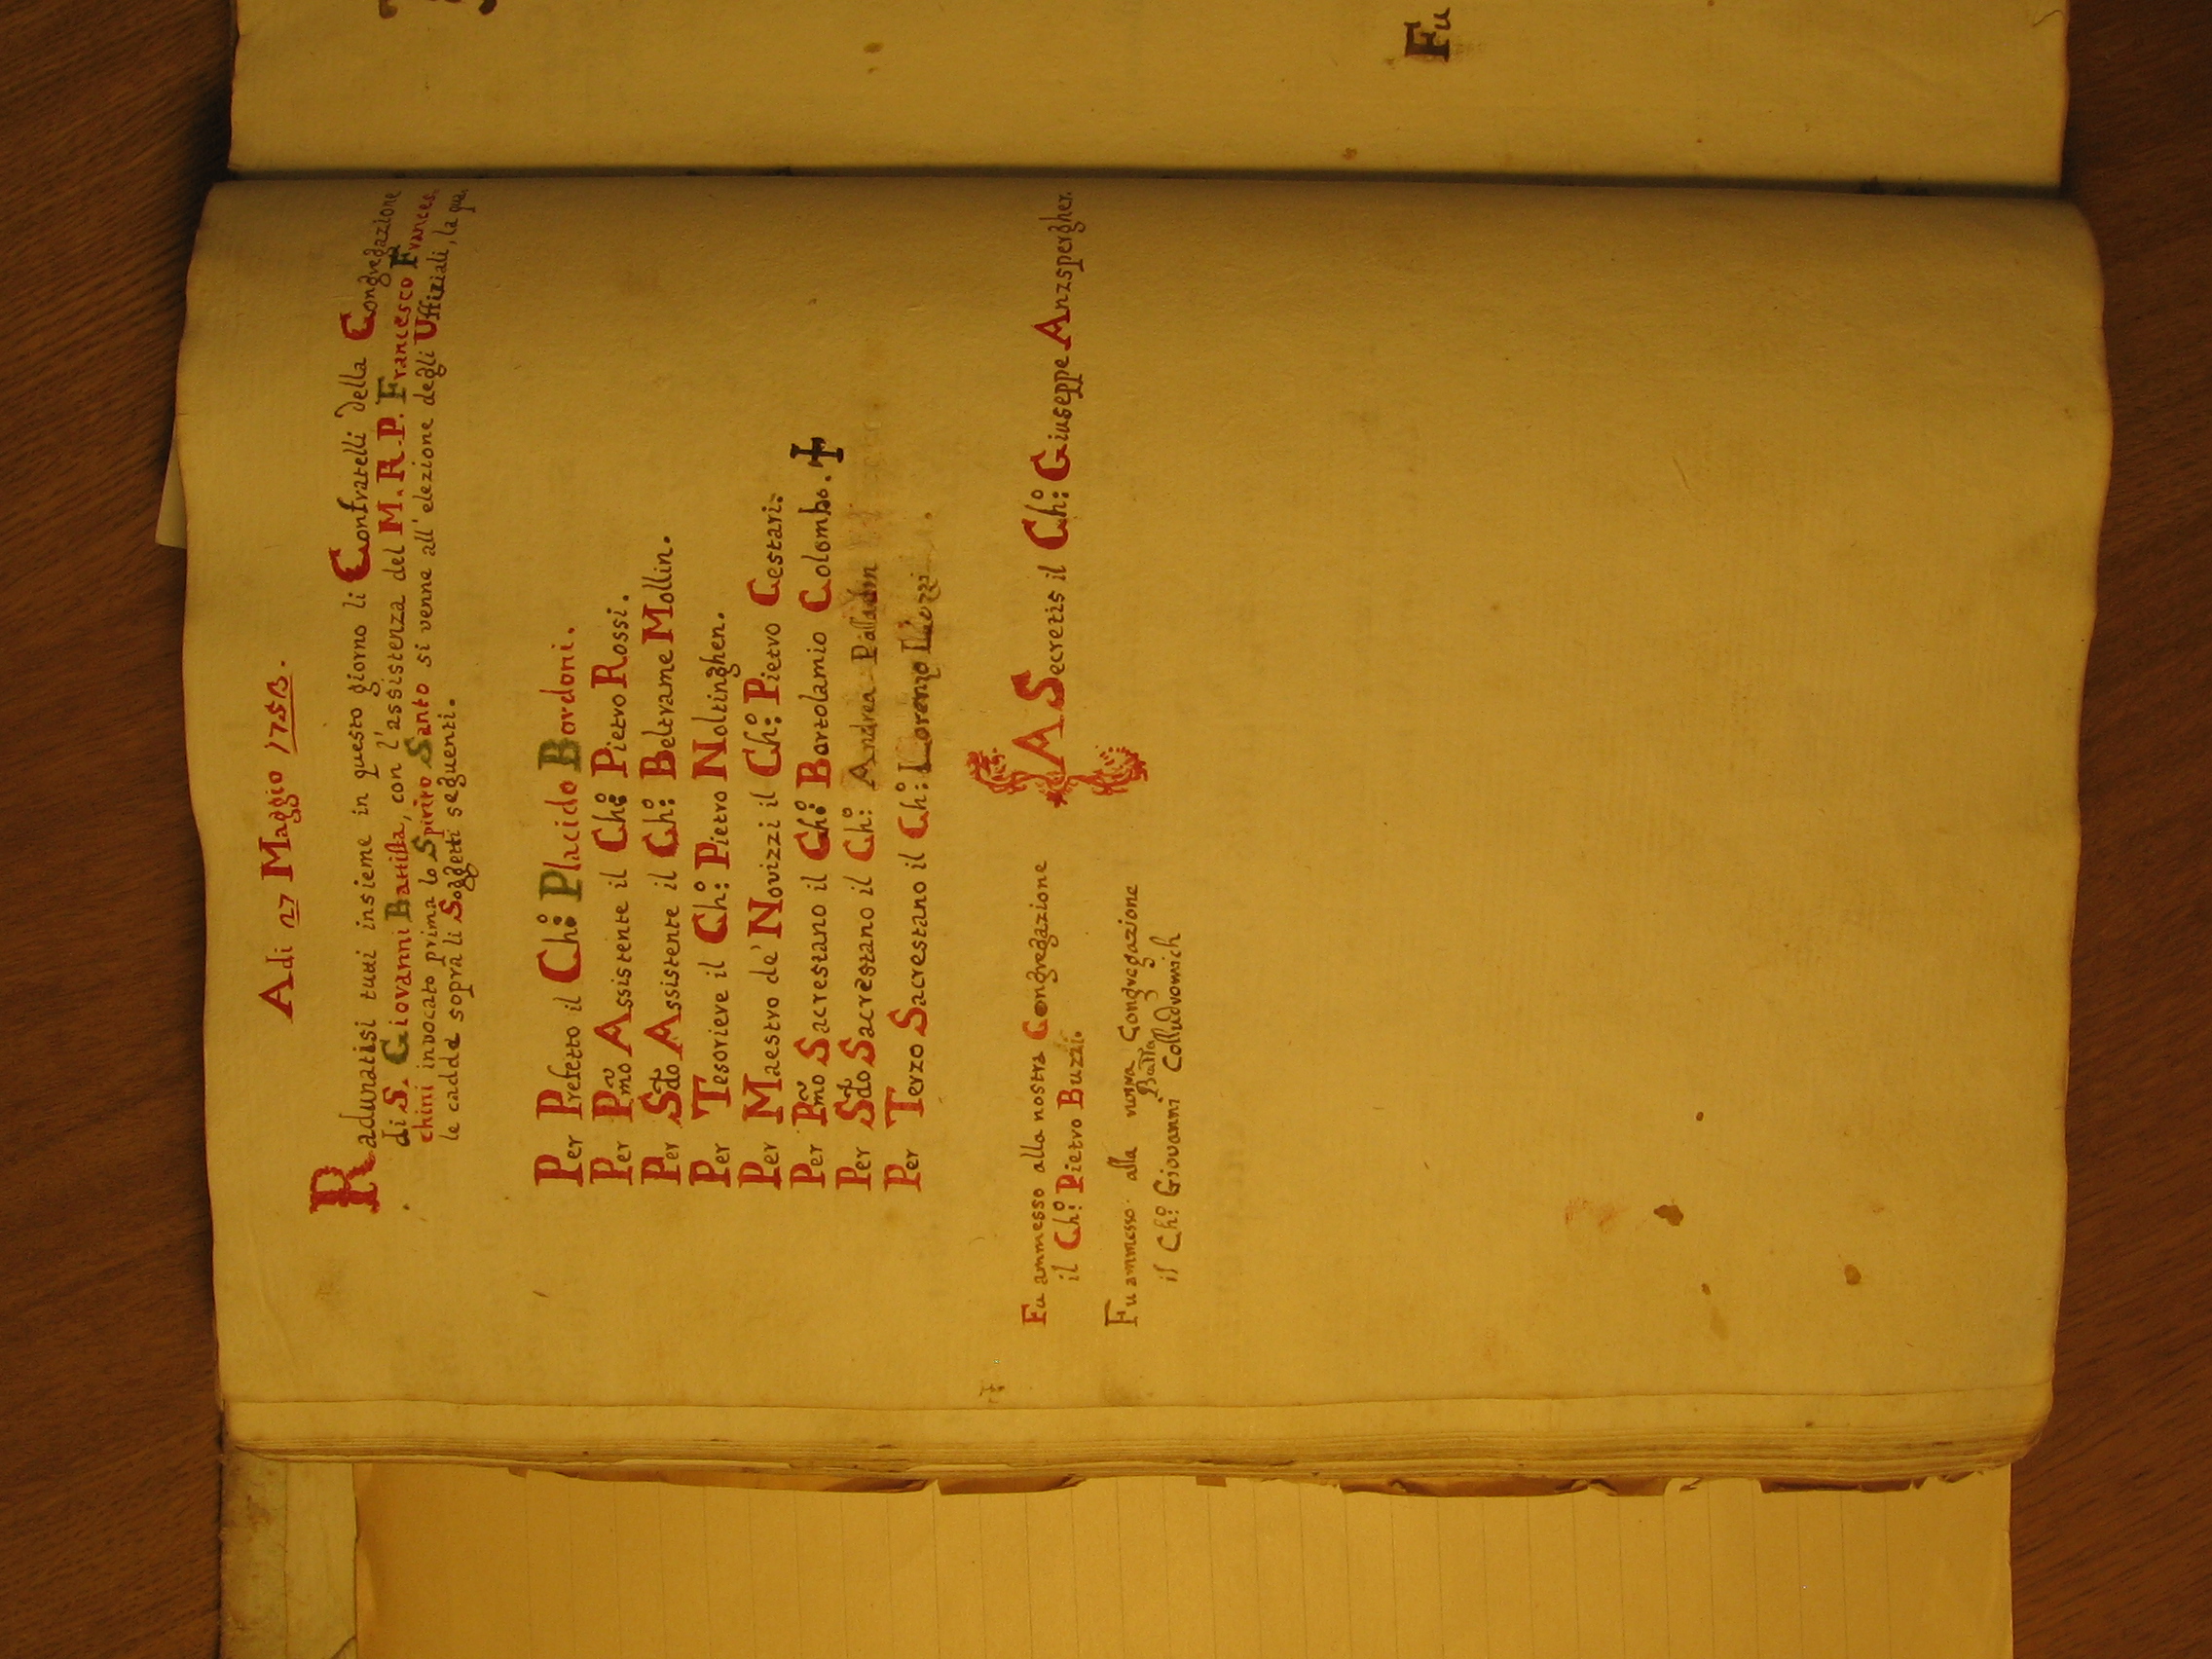 Adi 27 Maggio 1758.
Radunatisi tutti insieme in questo giorno li Confratelli della Congregazione
di S. Giovanni Battista, con l'assistenza del M. R. P. Francesco Frances
chini invocato prima lo Spirito Santo si venne all'elezione degli Uffiziali, la qua
le cadde sopra li Soggetti seguenti.
Per Prefetto il Ch:º Placido Bordoni.
Per Pmõ Assistente il Ch:º Pietro Rossi.
Per Sdõ Assistente il Ch:º Beltrame Mollin.
Per Tesoriere il Ch:º Pietro Noltinghen.
Per Maestro de' Novizzi il Ch:º Pietro Cestari.
Per Pmõ Sacrestano il Ch:º Bortolamio Colombo. ✝
Per Sdõ Sacrestano il Ch:º Andrea
Per Terzo Sacrestano il Ch:º Lorenzo
A Secretis il Ch:º Giuseppe Anzspergher.
Fu ammesso alla nostra Congregazione
il Ch:º Pietro Buzzi.
Fu ammesso alla Congregazione
il Ch:º Giovanni Batta
Fu